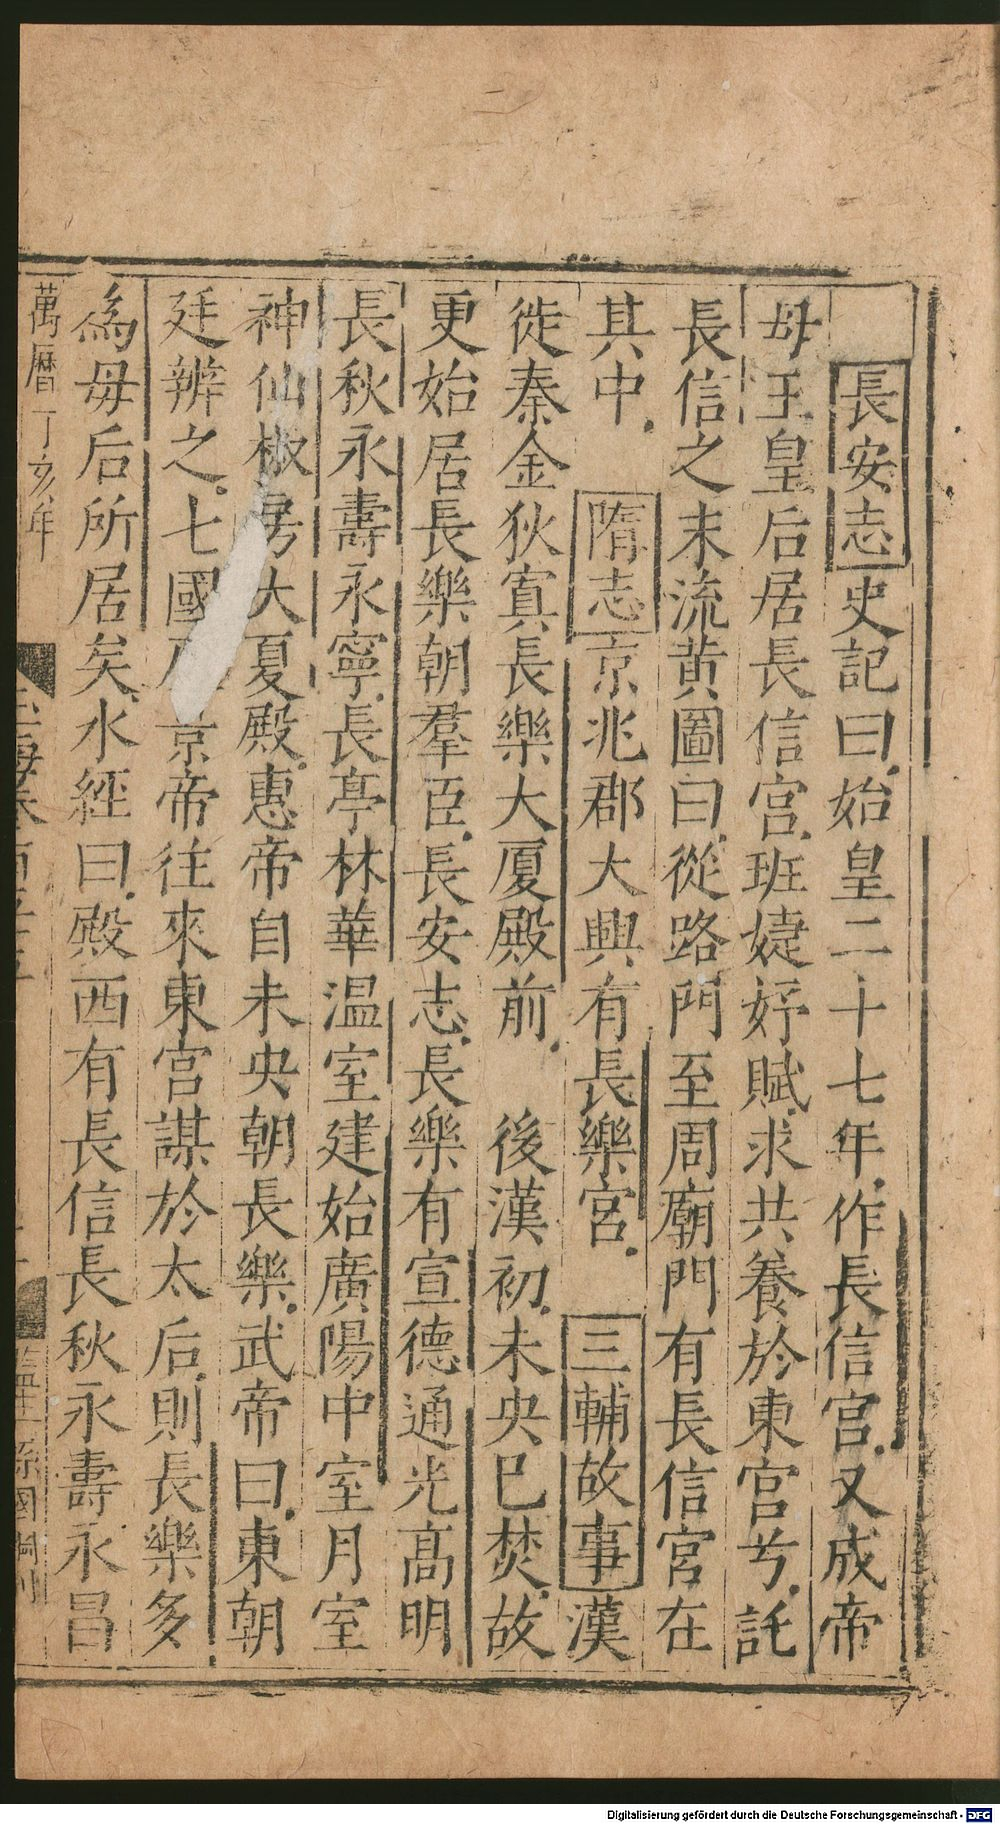 長安志史記曰始皇二十七年作長信宮又成帝
母王皇后居長信宮班婕妤賦求共養於東宮兮託
長信之末流黄圖曰從路門至周廟門有長信宮在
其中 隋志京兆郡大興有長樂宮 三輔故事漢
徙秦金狄寘長樂大厦殿前 後漢初未央已焚故
更始居長樂朝羣臣長安志長樂有宣德通光高明
長秋永壽永寧長亭林華溫室建始廣陽中室月室
神仙椒房大夏殿惠帝自未央朝長樂武帝曰東朝
廷辨之七國景帝往來東宮謀於太后則長樂多
為母后所居矣水經曰殿西有長信長秋永壽永昌
萬曆丁亥年
監生 國
Digitalisierung gefördert durch die Deutsche Forschungsgemeinschaft - DFG